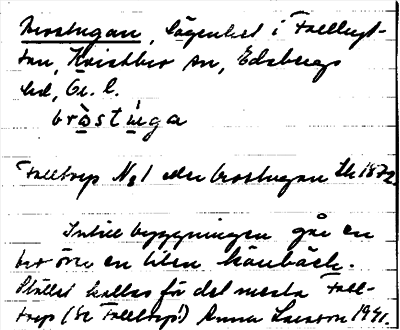 Brostugan, lägenhet i Falltorp-
tun, Kvistbro sn, Edsbergs
hd, Ör. l.
bròstùga
Falltorp № 1 eller Brostugan Lk 1872.
Intill byggningen går en
bro över en liten kanbäck.
Stället kallas för det mesta Fall-
torp (Se Falltorp!) Anna Larsson 1941.